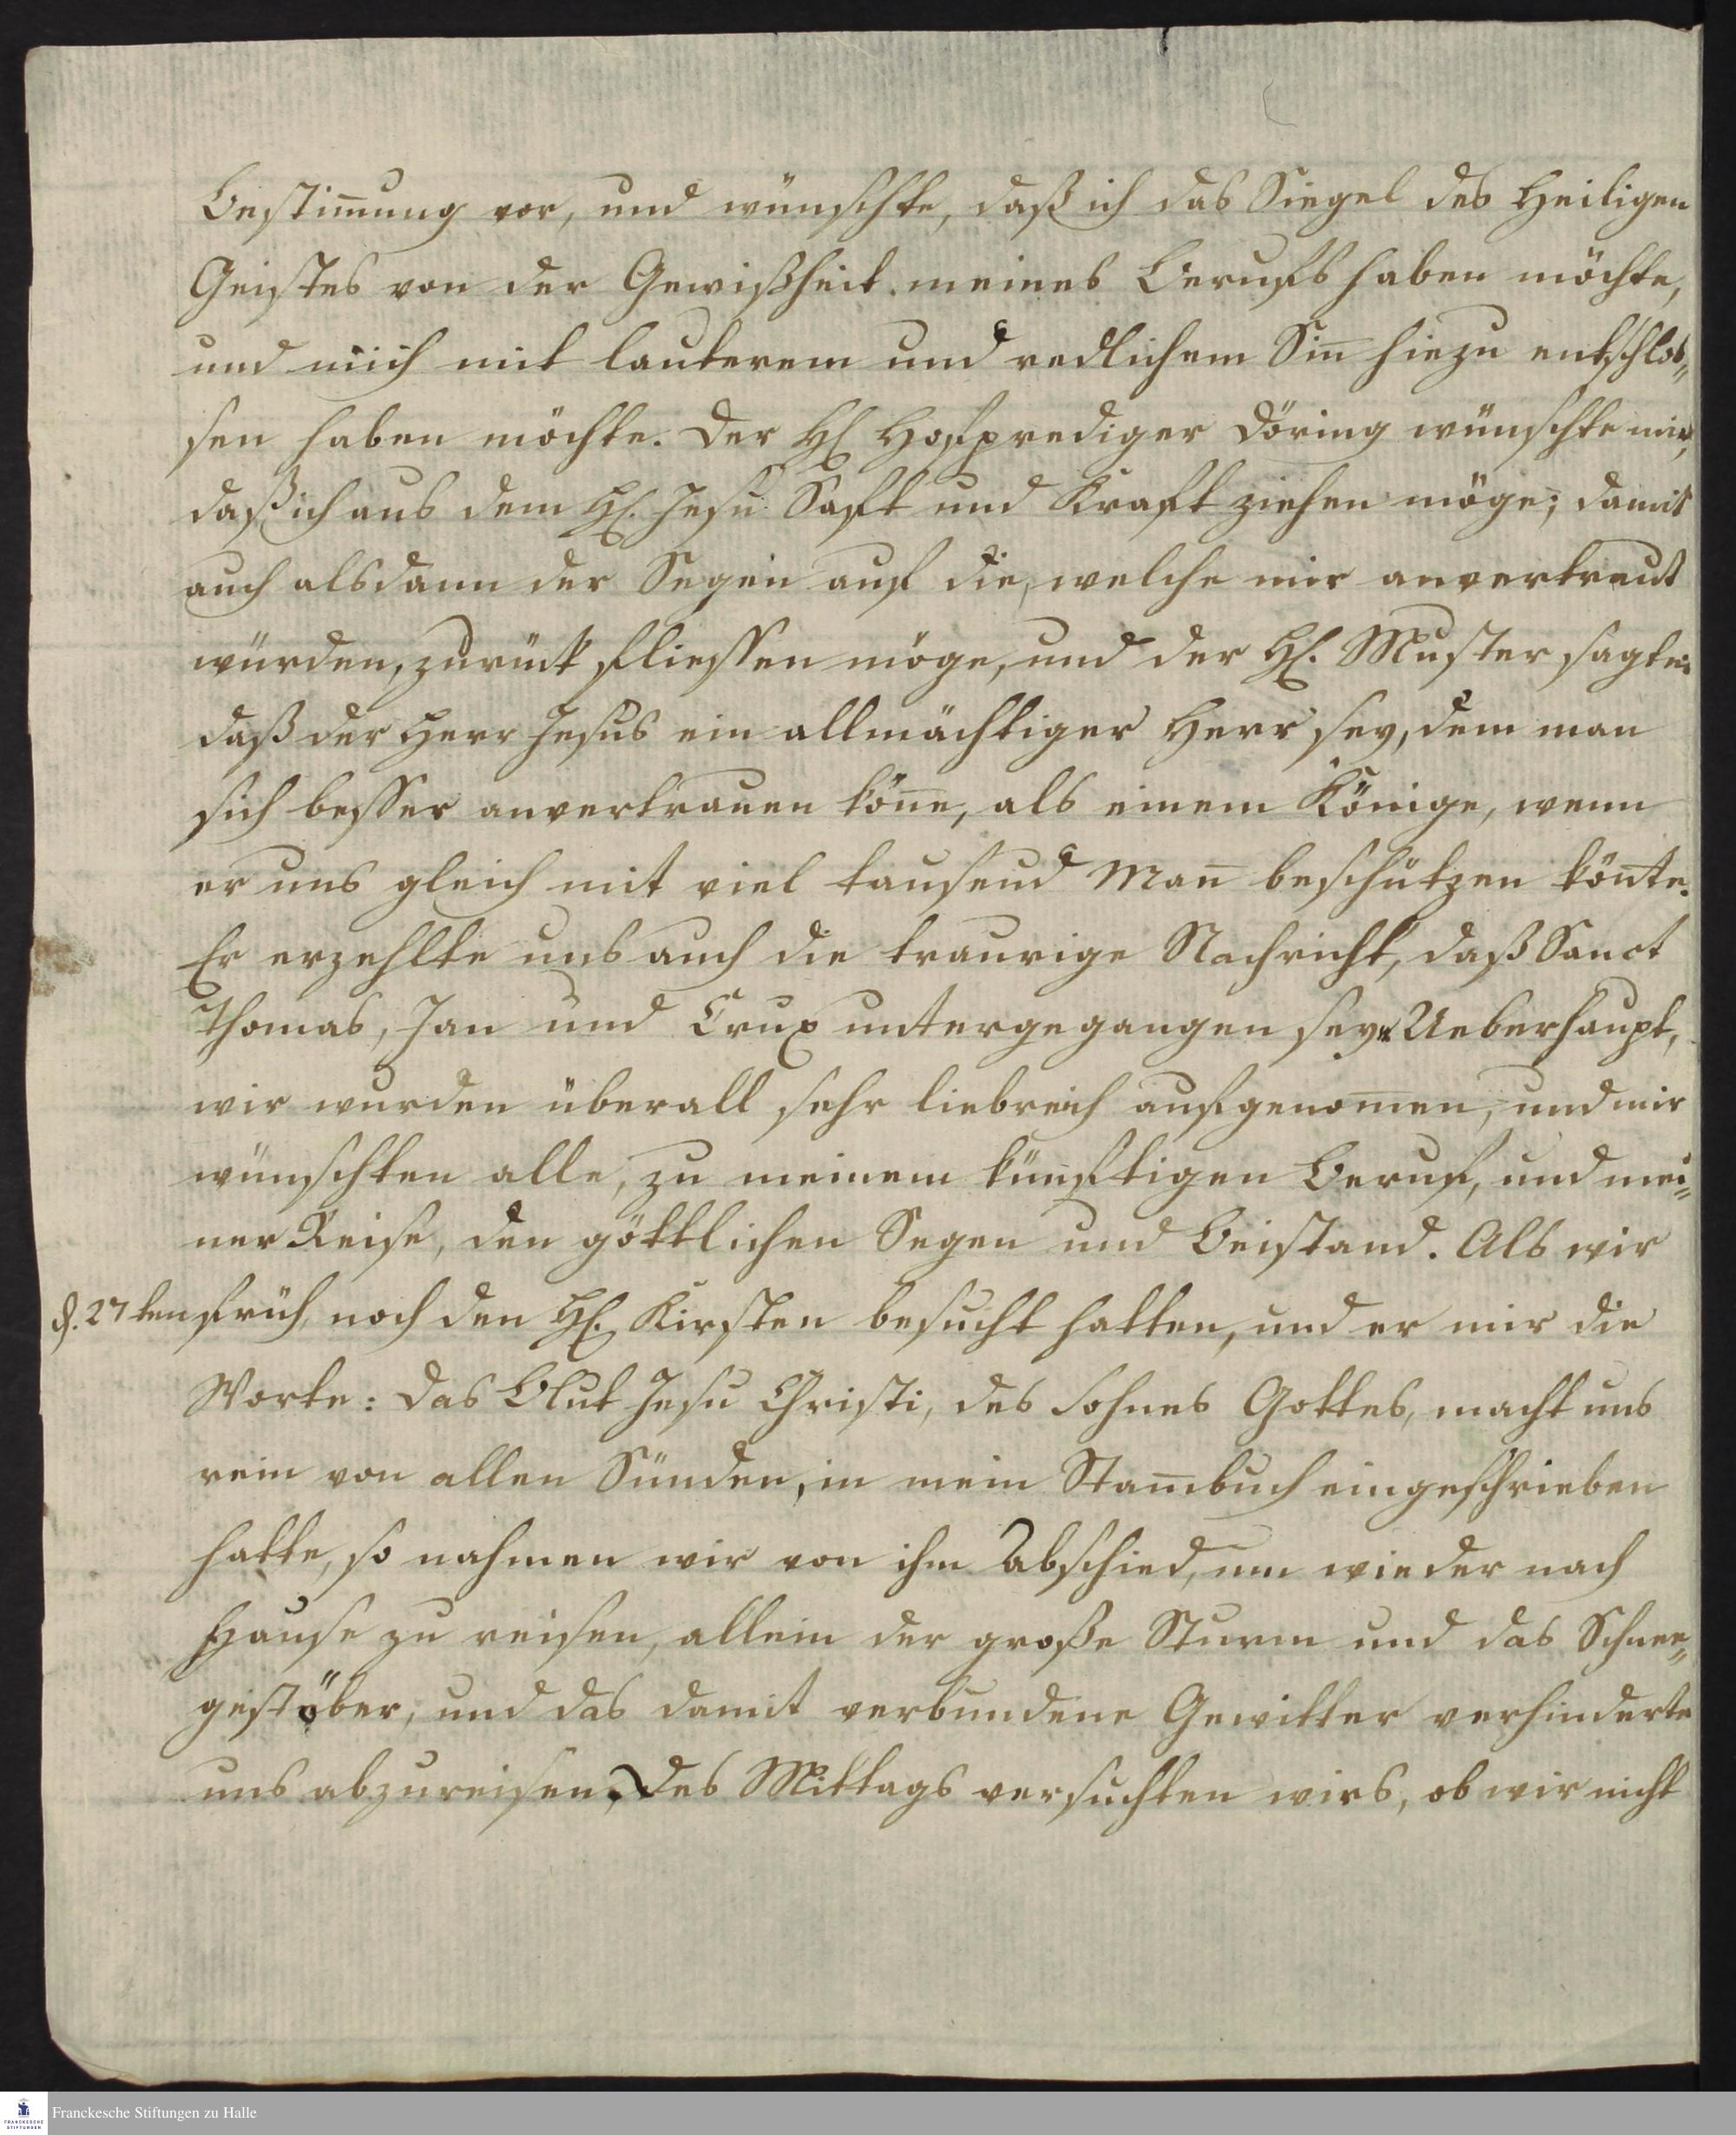 Bestim̄ung vor, und wünschte, daß ich das Siegel des Heiligen
Geistes von der Gewißheit meines Berufs haben möchte,
und mich mit lauterem und redlichem Sin̄ hiezu entschlos„
sen haben möchte. Der H. Hofprediger Döring wünschte mir,
daß ich aus dem H. Jesu Saft und Kraft ziehen möge; damit
auch alsdann der Segen auf die, welche mir anvertraut
würden, zurück fliessen möge, und der H. Muster sagte:
daß der Herr Jesus ein allmächtiger Herr sey, dem man
sich besser anvertrauen kön̄e, als einem Könige, wenn
er uns gleich mit viel tausend Man̄ beschützen kön̄te.
Er erzehlte uns auch die traurige Nachricht, daß Sanct
Thomas, Jan und Crux untergegangen sey. Ueberhaupt,
wir wurden überall sehr liebreich aufgenom̄en, und mir
wünschten alle, zu meinem künftigen Beruf, und mei„
ner Reise, den göttlichen Segen und Beistand. Als wir
d. 27ten früh, noch den H. Kirsten besucht hatten, und er mir die
Worte: Das Blut Jesu Christi, des Sohnes Gottes, macht uns
rein von allen Sünden, in mein Stam̄buch eingeschrieben
hatte, so nahmen wir von ihm Abschied, um wieder nach
Hause zu reisen, allein der große Sturm und das Schnee„
gestöber, und das damit verbundene Gewitter verhinderte
uns abzureisen. Des Mittags versuchten wirs, ob wir nicht
FRANCKESCHE
STIFTUNGEN
Franckesche Stiftungen zu Halle